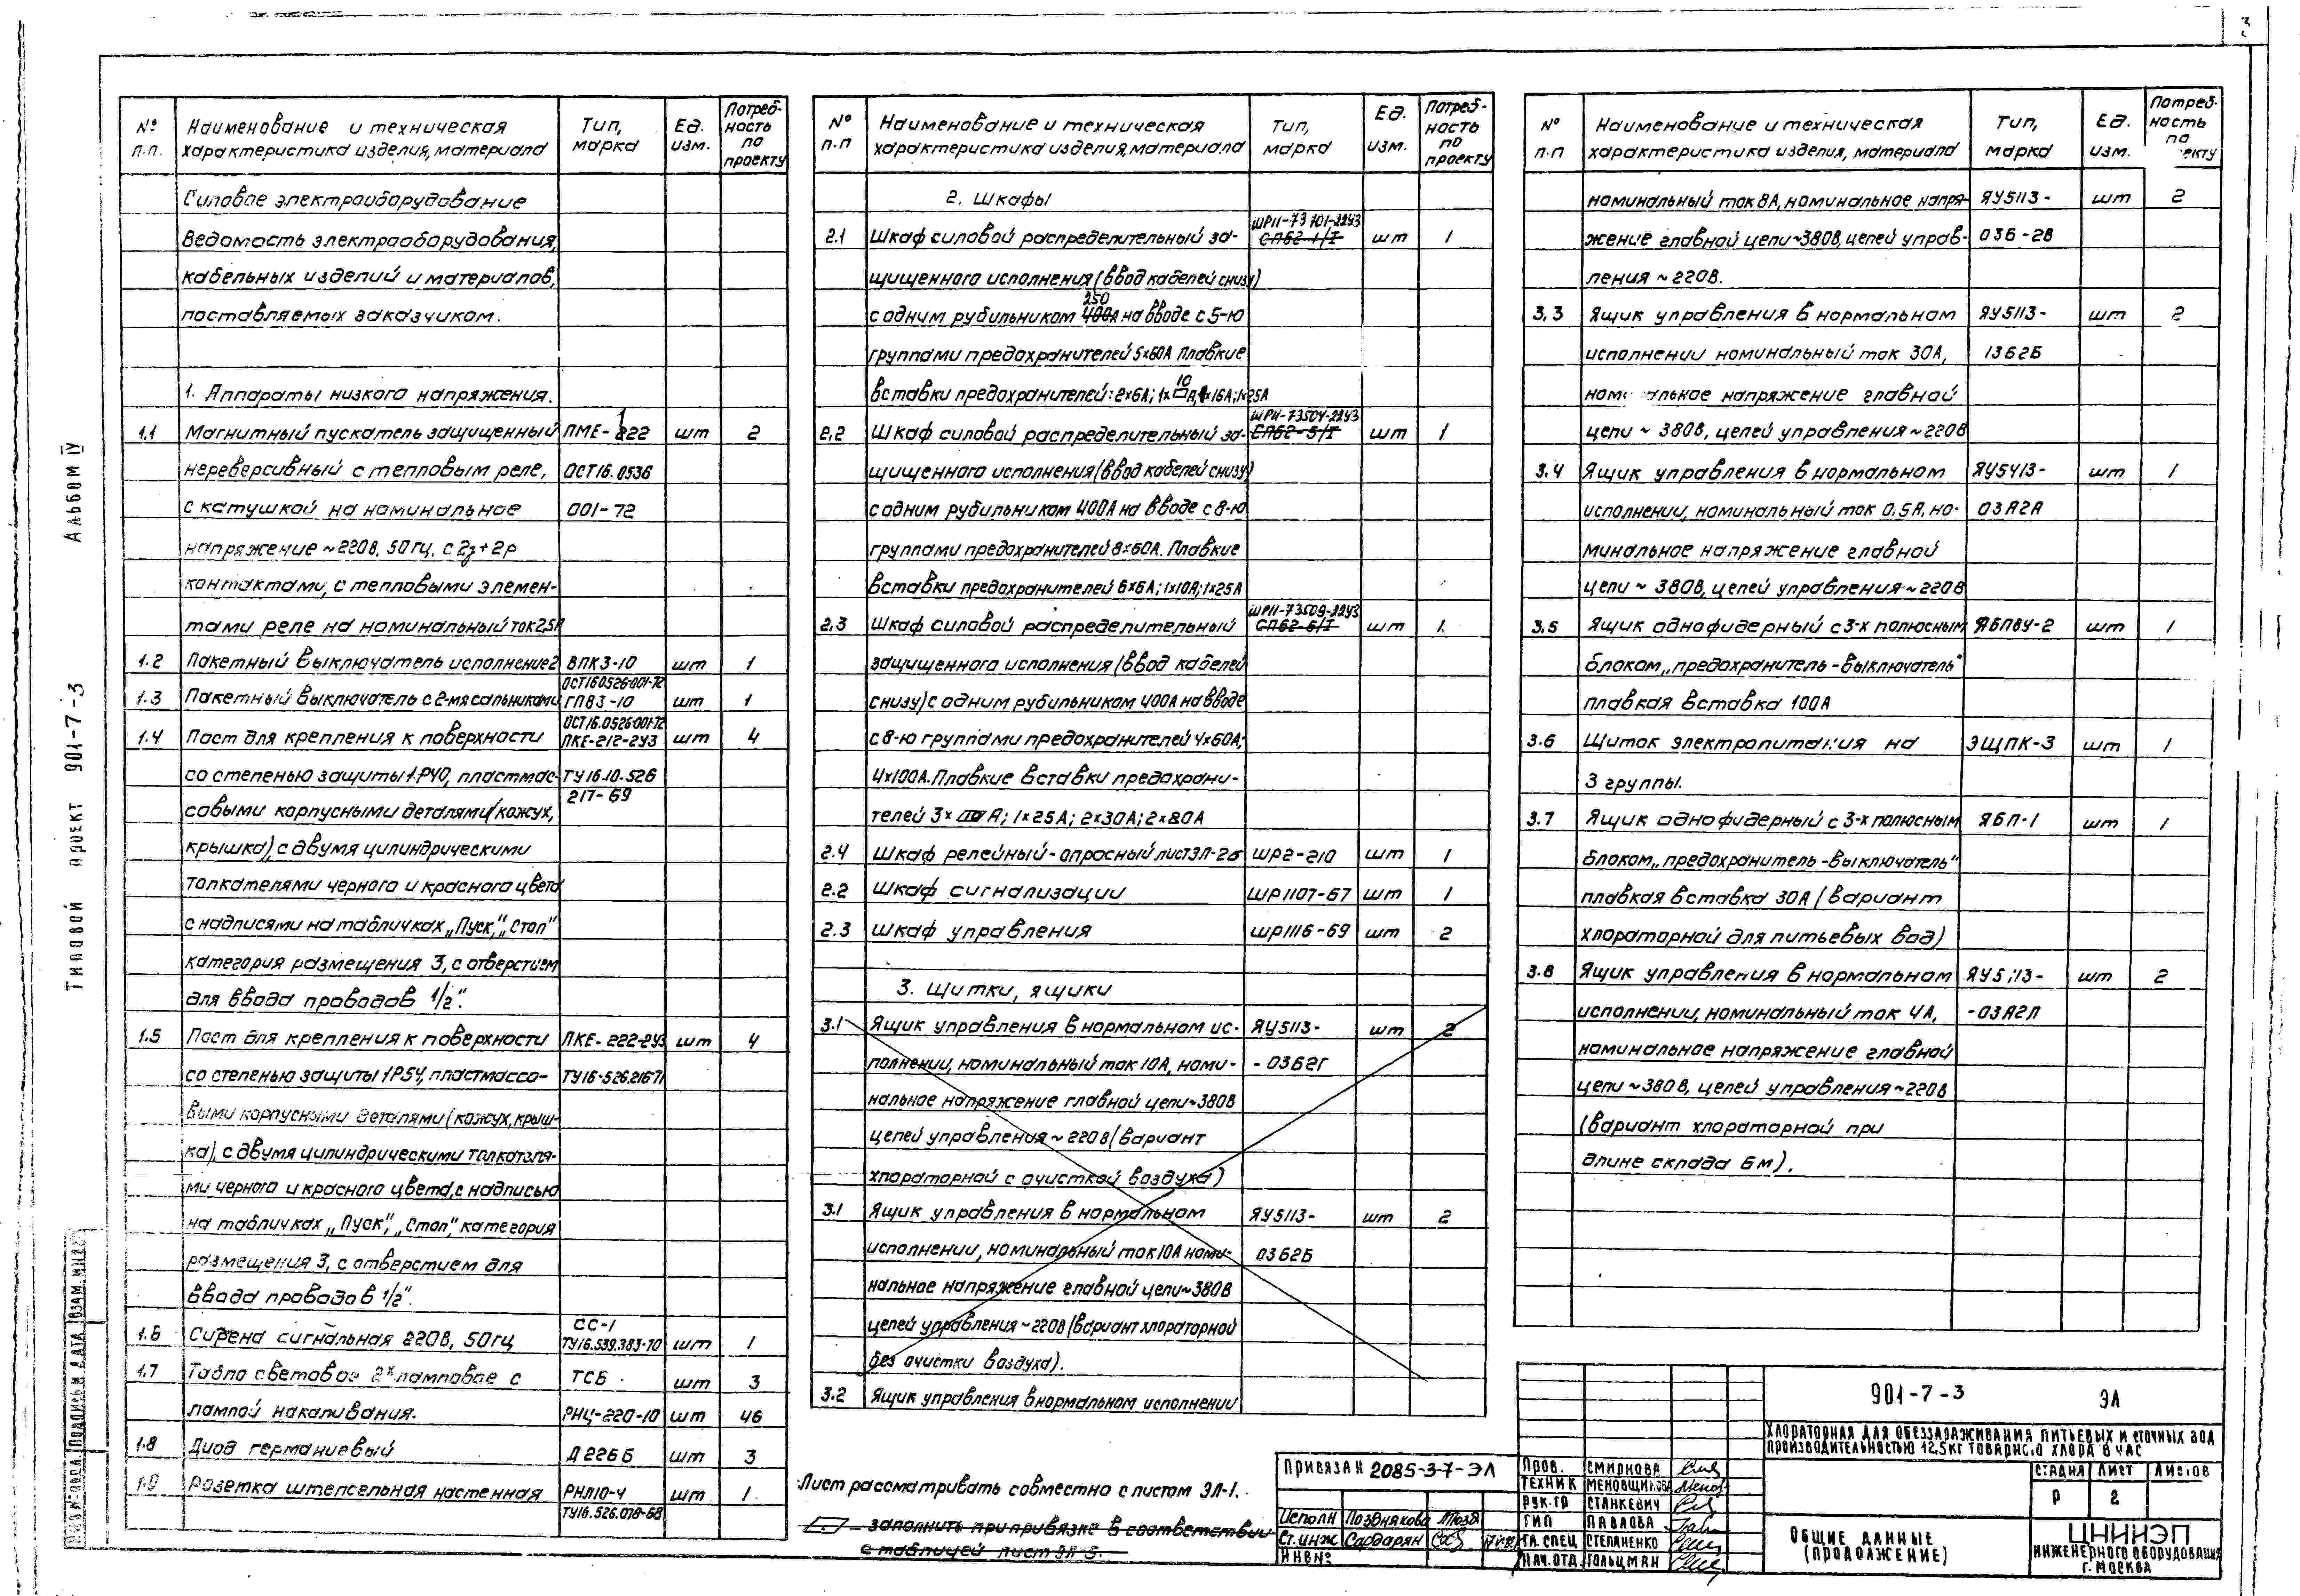 3
АЛЬБОМ IV
ТИПОВОЙ ПРОЕКТ 901-7-3
ВЗАМ. ИНВ. №
ПОДПИСЬ И ДАТА
№ п.п. Наименование и техническая характеристика изделия, материала Тип, марка Ед. изм. Потребность по проекту
Силовое электрооборудование
Ведомость электрооборудования,
кабельных изделий и материалов,
поставляемых заказчиком.
1. Аппараты низкого напряжения.
1.1 Магнитный пускатель защищенный ПМЕ-122 шт 2
нереверсивный с тепловым реле, ОСТ16.0536
с катушкой на номинальное 001-72
напряжение ~220В, 50гц, с 2з+2р
контактами, с тепловыми элемен-
тами реле на номинальный ток 2,5А
1.2 Пакетный выключатель исполнение 2 ВПК3-10 шт 1
ОСТ16.0526.001-72
1.3 Пакетный выключатель с 2-мя сальниками ГПВ3-10 шт 1
ОСТ16.0526.001-72
1.4 Пост для крепления к поверхности ПКЕ-212-2У3 шт 4
со степенью защиты 1Р40, пластмас- ТУ16.10.526
217-69
совыми корпусными деталями (кожух,
крышка), с двумя цилиндрическими
толкателями черного и красного цвета
с надписями на табличках „Пуск", „Стоп"
категория размещения 3, с отверстием
для ввода проводов 1/2".
1.5 Пост для крепления к поверхности ПКЕ-222-2У3 шт 4
со степенью защиты 1Р54, пластмассо- ТУ16-526.216-71
выми корпусными деталями (кожух, крыш-
ка), с двумя цилиндрическими толкателя-
ми черного и красного цвета, с надписью
на табличках „Пуск", „Стоп", категория
размещения 3, с отверстием для
ввода проводов 1/2".
СС-1
1.6 Сирена сигнальная 220В, 50гц ТУ16.539.383-70 шт 1
1.7 Табло световое 2х ламповое с ТСБ шт 3
лампой накаливания. РНЦ-220-10 шт 46
1.8 Диод германиевый Д226Б шт 3
1.9 Розетка штепсельная настенная РНЛ10-4 шт 1
ТУ16.526.078-68
№ п.п Наименование и техническая характеристика изделия, материала Тип, марка Ед. изм. Потребность по проекту
2. Шкафы
ШР11-73701-22У3
2.1 Шкаф силовой распределительный за- СП62-1/I шт 1
щищенного исполнения (ввод кабелей снизу)
250
с одним рубильником 400А на вводе с 5-ю
группами предохранителей 5х60А плавкие
10
вставки предохранителей: 2х6А; 1х А, 1х16А; 1х25А
ШР11-73504-22У3
2.2 Шкаф силовой распределительный за- СП62-5/I шт 1
щищенного исполнения (ввод кабелей снизу)
с одним рубильником 400А на вводе с 8-ю
группами предохранителей 8х60А. Плавкие
вставки предохранителей 6х6А; 1х10А; 1х25А
ШР11-73509-22У3
2.3 Шкаф силовой распределительный СП62-6/I шт 1.
защищенного исполнения (ввод кабелей
снизу) с одним рубильником 400А на вводе
с 8-ю группами предохранителей 4х60А;
4х100А. Плавкие вставки предохрани-
телей 3х А; 1х25А; 2х30А; 2х80А
2.4 Шкаф релейный-опросный лист ЭЛ-26 ШР2-210 шт 1
2.2 Шкаф сигнализации ШР1107-67 шт 1
2.3 Шкаф управления ШР1116-69 шт 2
3. Щитки, ящики
3.1 Ящик управления в нормальном ис- ЯУ5113- шт 2
полнении, номинальный ток 10А, номи- -03Б2Г
нальное напряжение главной цепи ~380В
цепей управления ~220В (вариант
хлораторной с очисткой воздуха)
3.1 Ящик управления в нормальном ЯУ5113- шт 2
исполнении, номинальный ток 10А номи- 03Б2Б
нальное напряжение главной цепи ~380В
цепей управления ~220В (вариант хлораторной
без очистки воздуха).
3.2 Ящик управления в нормальном исполнении
№ п.п Наименование и техническая характеристика изделия, материала Тип, марка Ед. изм. Потребность по екту
номинальный ток 8А, номинальное напря- ЯУ5113- шт 2
жение главной цепи ~380В, цепей управ- 03Б-2В
ления ~220В.
3.3 Ящик управления в нормальном ЯУ5113- шт 2
исполнении номинальный ток 30А, 13Б2Б
номинальное напряжение главной
цепи ~380В, цепей управления ~220В
3.4 Ящик управления в нормальном ЯУ5413- шт 1
исполнении, номинальный ток 0.5А, но- 03А2А
минальное напряжение главной
цепи ~380В, цепей управления ~220В
3.5 Ящик однофидерный с 3-х полюсным ЯБПВУ-2 шт 1
блоком „предохранитель-выключатель"
плавкая вставка 100А
3.6 Щиток электропитания на ЭЩПК-3 шт 1
3 группы.
3.7 Ящик однофидерный с 3-х полюсным ЯБП-1 шт 1
блоком „предохранитель-выключатель"
плавкая вставка 30А (вариант
хлораторной для питьевых вод)
3.8 Ящик управления в нормальном ЯУ5113- шт 2
исполнении, номинальный ток 4А, -03А2Л
номинальное напряжение главной
цепи ~380В, цепей управления ~220В
(вариант хлораторной при
длине склада 6м).
Лист рассматривать совместно с листом ЭЛ-1.
заполнить при привязке в соответствии
с таблицей лист ЭЛ-5.
ПРИВЯЗАН 2085-3-7-ЭЛ
Исполн Позднякова
Ст.инж Сардарян
ИНВ№
ПРОВ. СМИРНОВА
ТЕХНИК МЕНОВЩИКОВА
РУК.ГР СТАНКЕВИЧ
ГИП ПАВЛОВА
ГЛ.СПЕЦ СТЕПАНЕНКО
НАЧ.ОТД ГОЛЬЦМАН
901-7-3 ЭЛ
ХЛОРАТОРНАЯ ДЛЯ ОБЕЗЗАРАЖИВАНИЯ ПИТЬЕВЫХ И СТОЧНЫХ ВОД
ПРОИЗВОДИТЕЛЬНОСТЬЮ 12,5КГ ТОВАРНОГО ХЛОРА В ЧАС
СТАДИЯ ЛИСТ ЛИСТОВ
Р 2
ОБЩИЕ ДАННЫЕ
(ПРОДОЛЖЕНИЕ)
ЦНИИЭП
ИНЖЕНЕРНОГО ОБОРУДОВАНИЯ
Г. МОСКВА